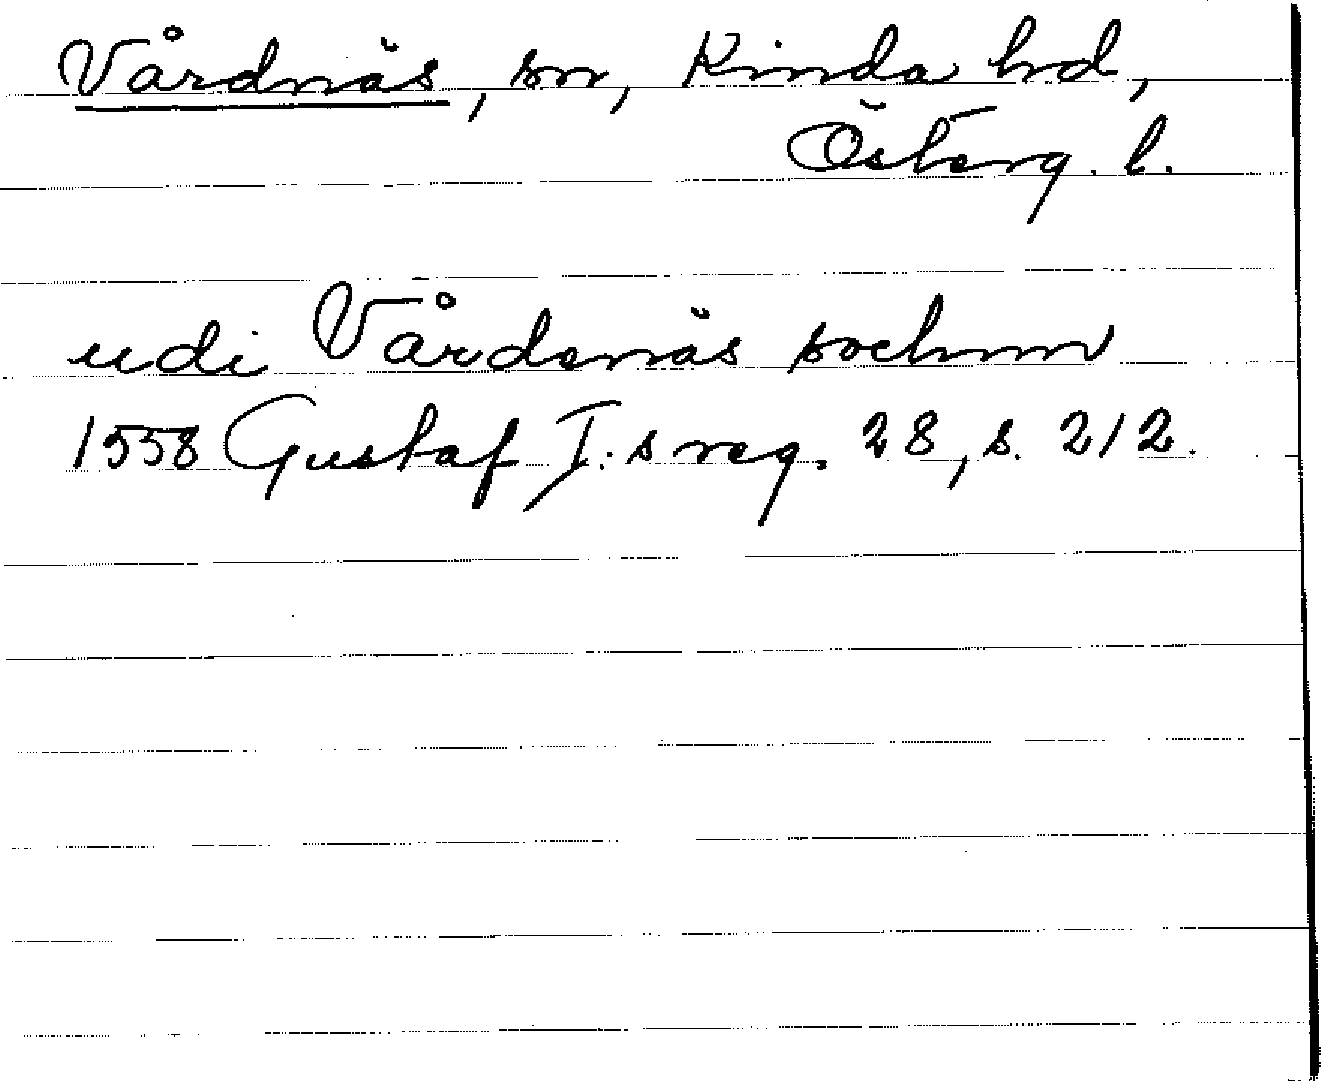 Vårdnäs, sn, Kinda hd,
Österg. l.
udi Vårdenäs sochnn
1558 Gustaf I:s reg. 28, s. 212.